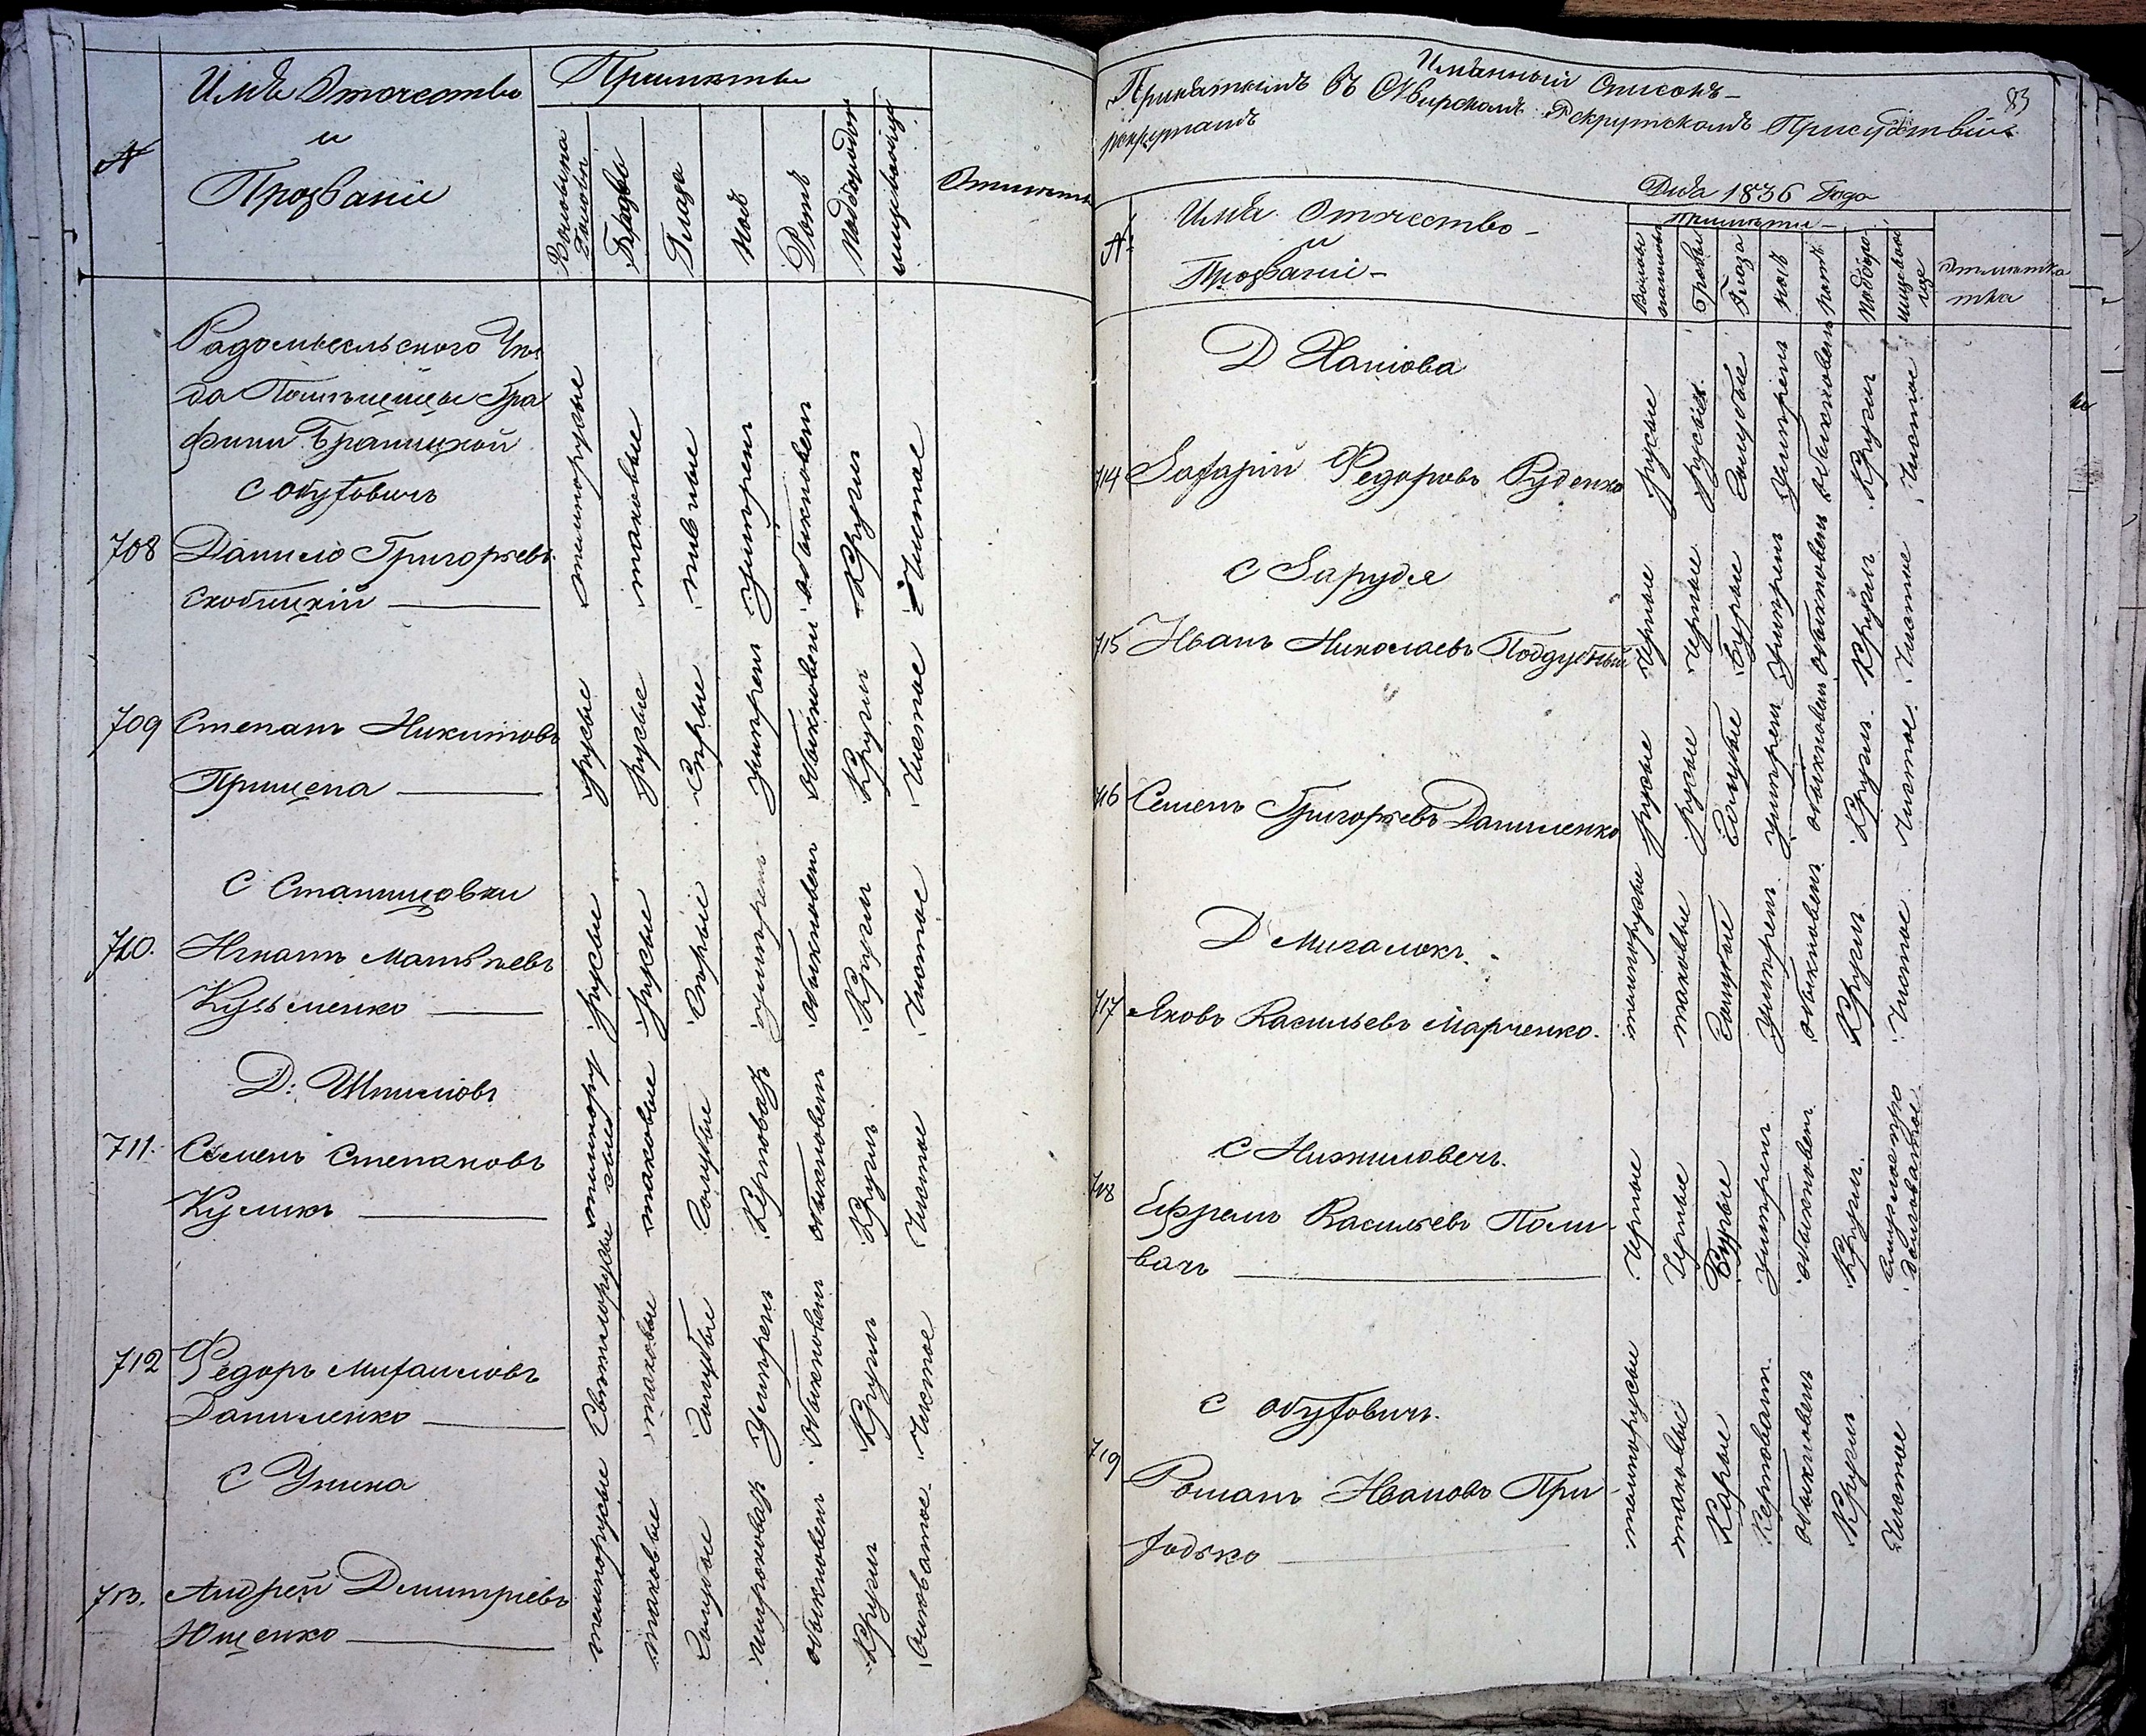 №
Имѣ Отчество
и
Прозваніе
Примѣты
Волосы на головѣ
Бровы
Глаза
Носъ
Ротъ
Подбородокъ
Лице вообще
Отмѣтк
Радомысльскаго Уѣз
да Помѣщицы Гра
фини Браницкой
С Обуховичъ
708 Данило Григорьевъ
Скобицкій
темнорусые таковые пивные умѣренъ обыкновенъ Круглъ Чистое
709 Степанъ Никитовъ
Прищепа
русые русые Сѣрые умѣренъ обыкновенъ Круглъ Чистое
С Станишовки
710. Игнатъ Матвѣевъ
Кузьменко
русые русые Сѣрые умѣренъ обыкновенъ Круглъ Чистое
Д: Шпилювъ
711. Семенъ Степановъ
Куликъ
таковые Голубые обыкновенъ Круглъ Чистое
712 Федоръ Михаиловъ
Даниленко
Свѣтлорусые таковые Голубые Умѣренъ обыкновенъ Круглъ Чистое
С Унина
713. Андрей Дмитріевъ
Ющенко
темнорусые таковые Голубые широковат обыкновенъ Круглъ
83
Имѣнный Списокъ
Принятымъ въ Сквирскомъ Рекрутскомъ Присудствіи
рекрутамъ
Дня 1836 Года
№
Имя Отчество
и
Прозваніе
Примѣти
Волосы на головы
Бровы
Глаза
носъ
ротъ
подборо.
лице вообще
Отмѣтка
тка
Д Ханіова
714 Захарій Федоровъ Руденко
русые русые Голубые Умѣренъ обыкновенъ Круглъ Чистое
С Зарудя
715 Иванъ Николаевъ Поддубный
Черные Черные Бурые Умѣренъ обыкновенъ Круглъ Чистое
716 Семенъ Григорьевъ Даниленко
русые русые Голубые умѣренъ обыкновенъ Круглъ Чистое
Д Мигалокъ.
717 Яковъ Васильевъ Марченко.
темнорусые таковые Голубые Умѣренъ обыкновенъ Круглъ Чистое
С Нижиловечъ.
718 Ефремъ Васильевъ Поли
вачъ
Черные Черные Бурые умѣренъ обыкновенъ Круглъ
С Обуховичъ.
719 Романъ Ивановъ При
ходько
темнорусые таковые Карые обыкновенъ Круглъ Чистое